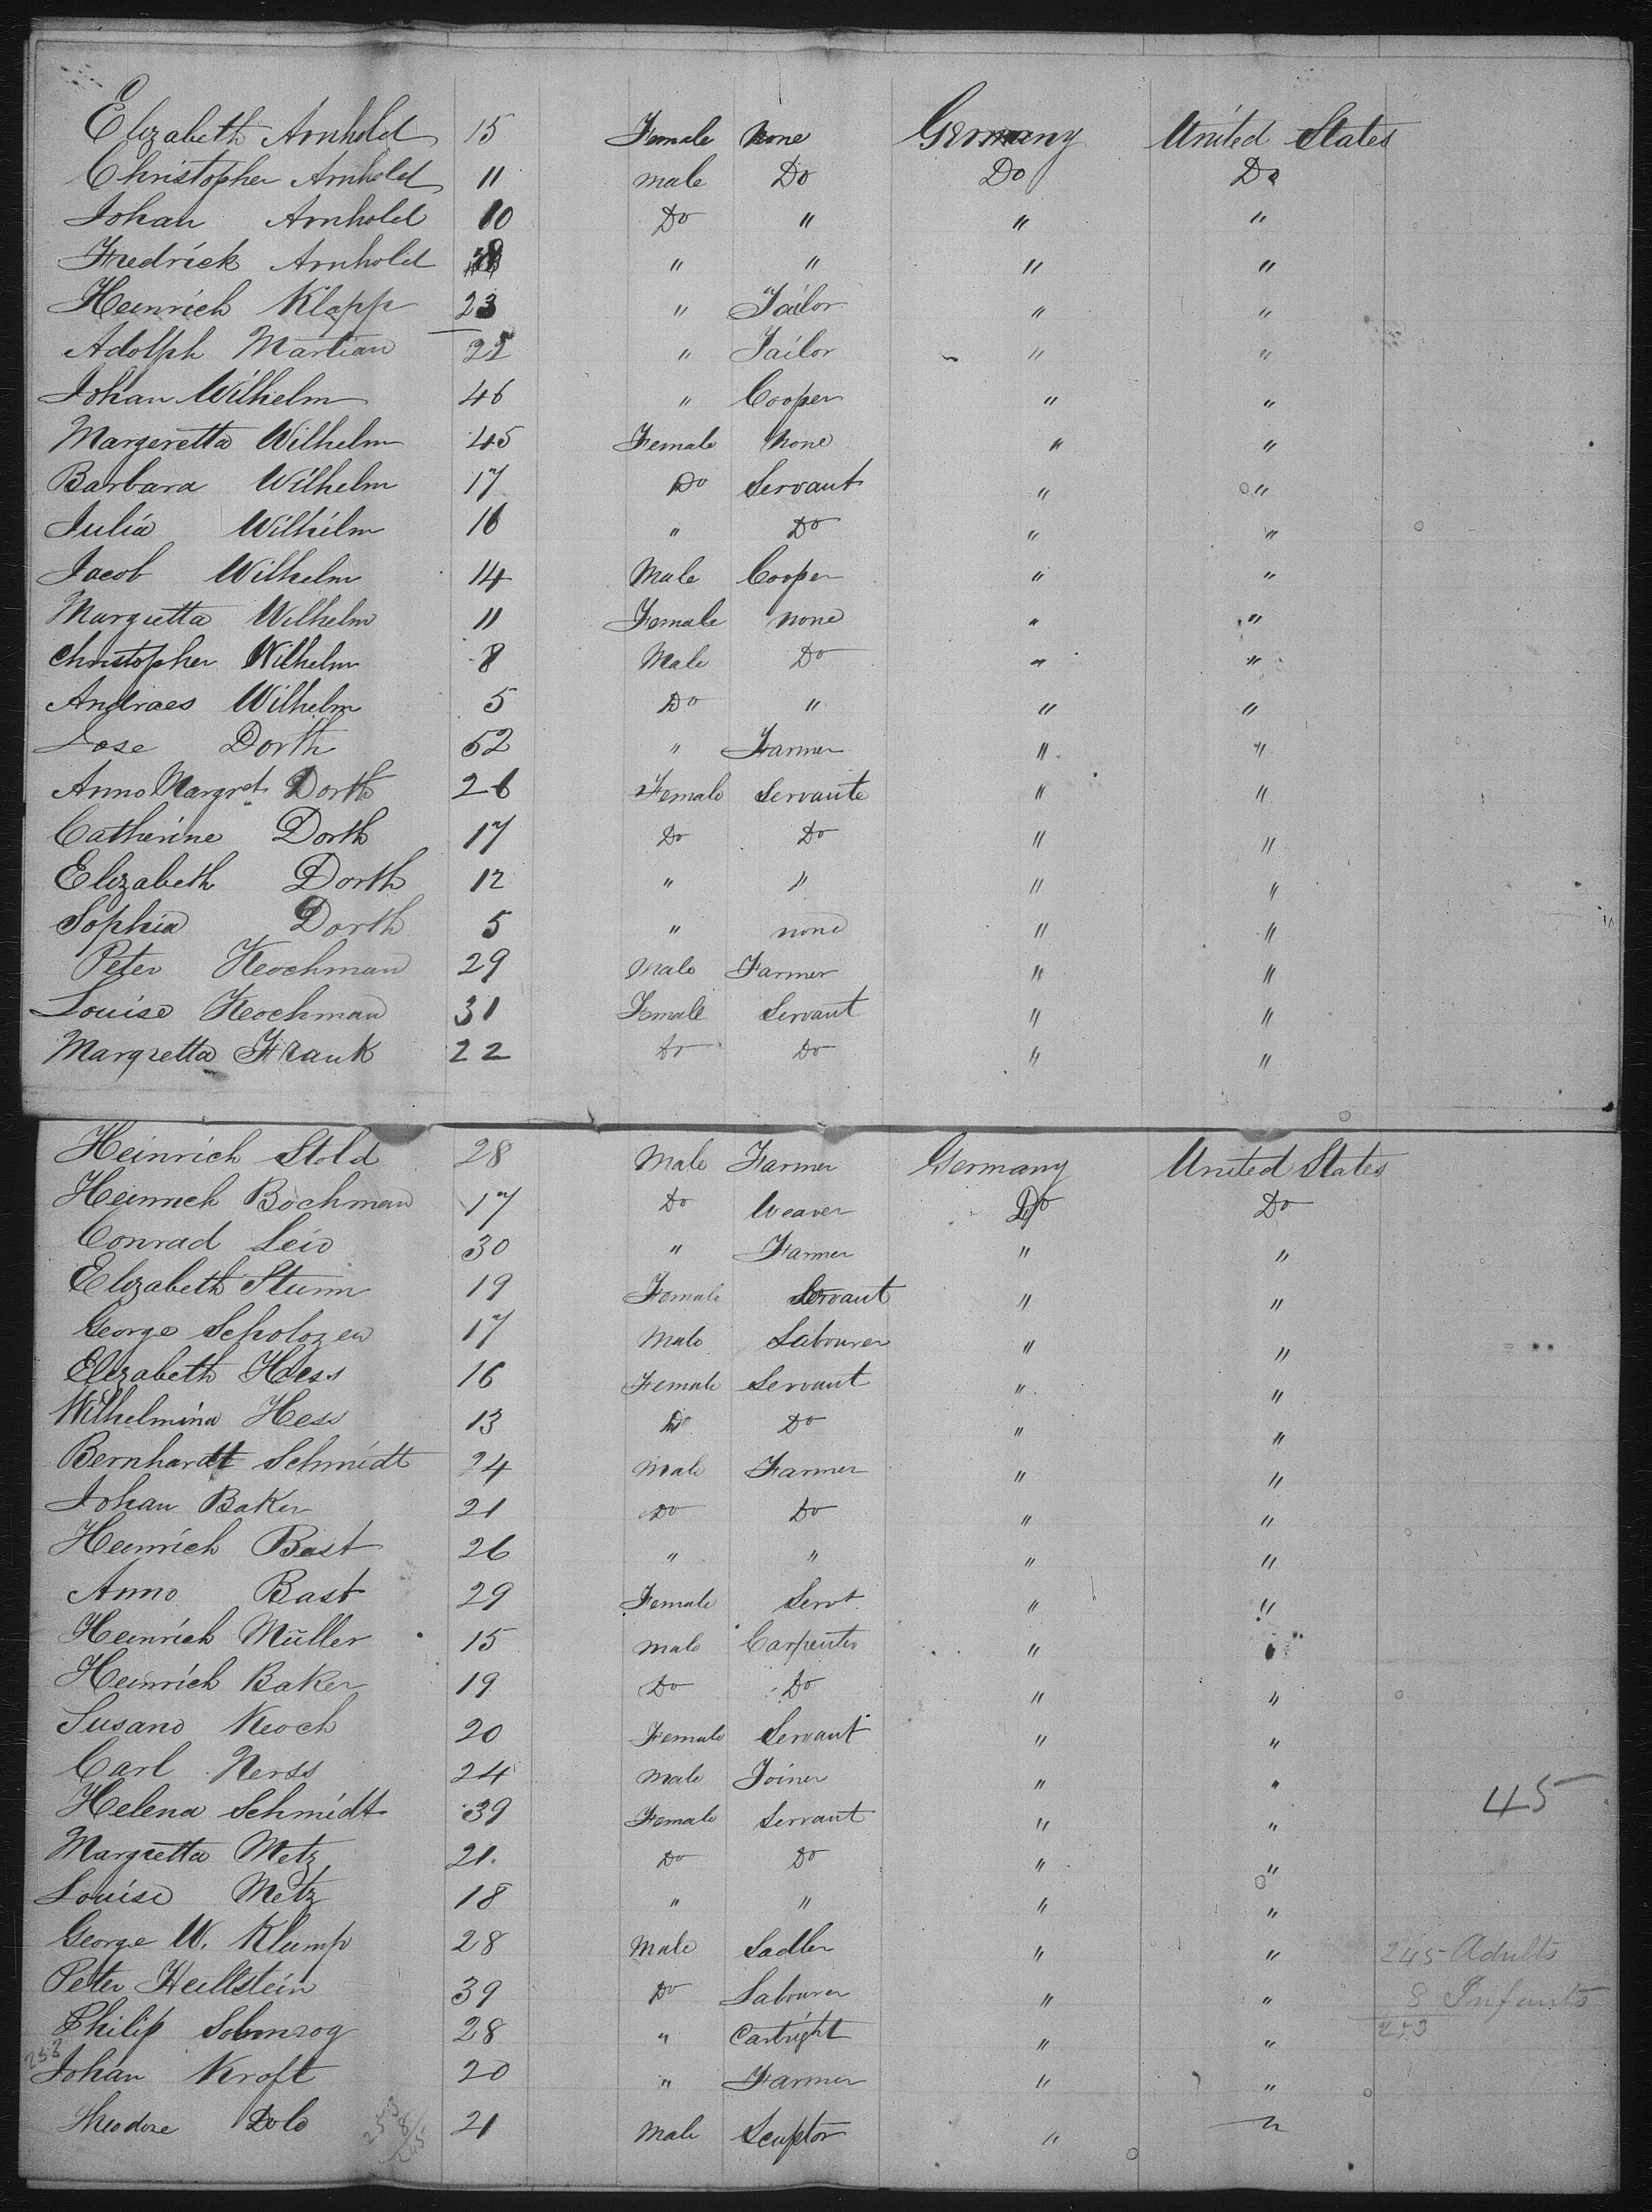 Elizabeth Arnhold 15 Female None Germany United States
Christopher Arnhold 11 male Do Do Do
Johan Arnhold 10 Do " " "
Fredrick Arnhold " " " "
Heinrich Klapp 23 " Tailor " "
Adolph Martian 22 " Tailor " "
Johan Wilhelm 46 " Cooper " "
Margeretta Wilhelm 45 Female None " "
Barbara Wilhelm 17 Do Servant " "
Julia Wilhelm 16 " Do " "
Jacob Wilhelm 14 Male Cooper " "
Margretta Wilhelm 11 Female none " "
Christopher Wilhelm 8 Male Do " "
Andraes Wilhelm 5 Do " " "
Jose Dorth 52 " Farmer " "
Anno Margret Dorth 26 Female Servante " "
Catherine Dorth 17 Do Do " "
Elizabeth Dorth 12 " " " "
Sophia Dorth 5 " none " "
Peter Keochman 29 Male Farmer " "
Louise Keochman 31 Female Servant " "
Margretta Frank 22 Do Do " "
Heinrich Stold 28 Male Farmer Germany United States
Heinrich Bochman 17 Do Weaver Do Do
Conrad Leio 30 " Farmer " "
Elizabeth Stumm 19 Female Servant " "
George Schologen 17 Male Labourer " "
Elizabeth Hess 16 Female Servant " "
Wilhelmina Hess 13 Do Do " "
Bernhardt Schmidt 24 Male Farmer " "
Johan Baker 21 Do Do " "
Heinrich Bast 26 " " " "
Anno Bast 29 Female Servt " "
Heinrich Müller 15 male Carpenter " "
Heinrich Baker 19 Do Do " "
Susano Keoch 20 Female Servant " "
Carl Nerss 24 Male Joiner " "
Helena Schmidt 39 Female Servant " " 45
Margretta Metz 21 Do Do " "
Louise Metz 18 " " " "
George W. Klump 28 Male Sadler " " 245 Adults
Peter Heullstein 39 Do Labourer " " 8 Infants
Philip 28 " Cartright " " 253
253
Johan Kroft 20 " Farmer " "
Theodore Dolo 21 Male Scuptor " "
253
8
245